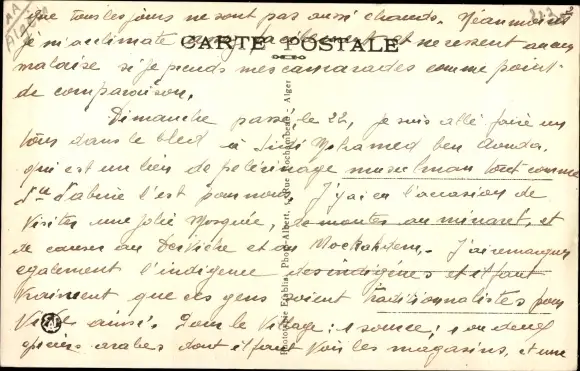 que tous les jours ne sont pas aussi chauds. Néanmoins
je m'acclimate et ne ressent aucun
CARTE POSTALE
malaise si je prends mes camarades comme point
de comparaison.
Dimanche passé, le 22, je suis allé faire un
tour dans le bled à Sidi Mohamed ben Aouda.
qui est un lieu de pèlerinage musulman tout comme
l'est pour nous. J'ai eu l'occasion de
visiter une jolie Mosquée, de monter au minaret, et
de causer au Derviche et au Mockahdem. J'ai remarqué
également l'indigence des indigènes et il faut
vraiment que ces gens soient traditionnalistes pour
vivre ainsi. Pour le village: 1 source; 1 ou deux
arabes dont il faut voir les magasins, et une
Phototypie Etablis. Photo-Albert, Rue Rochambeau - Alger
AA
Algérie